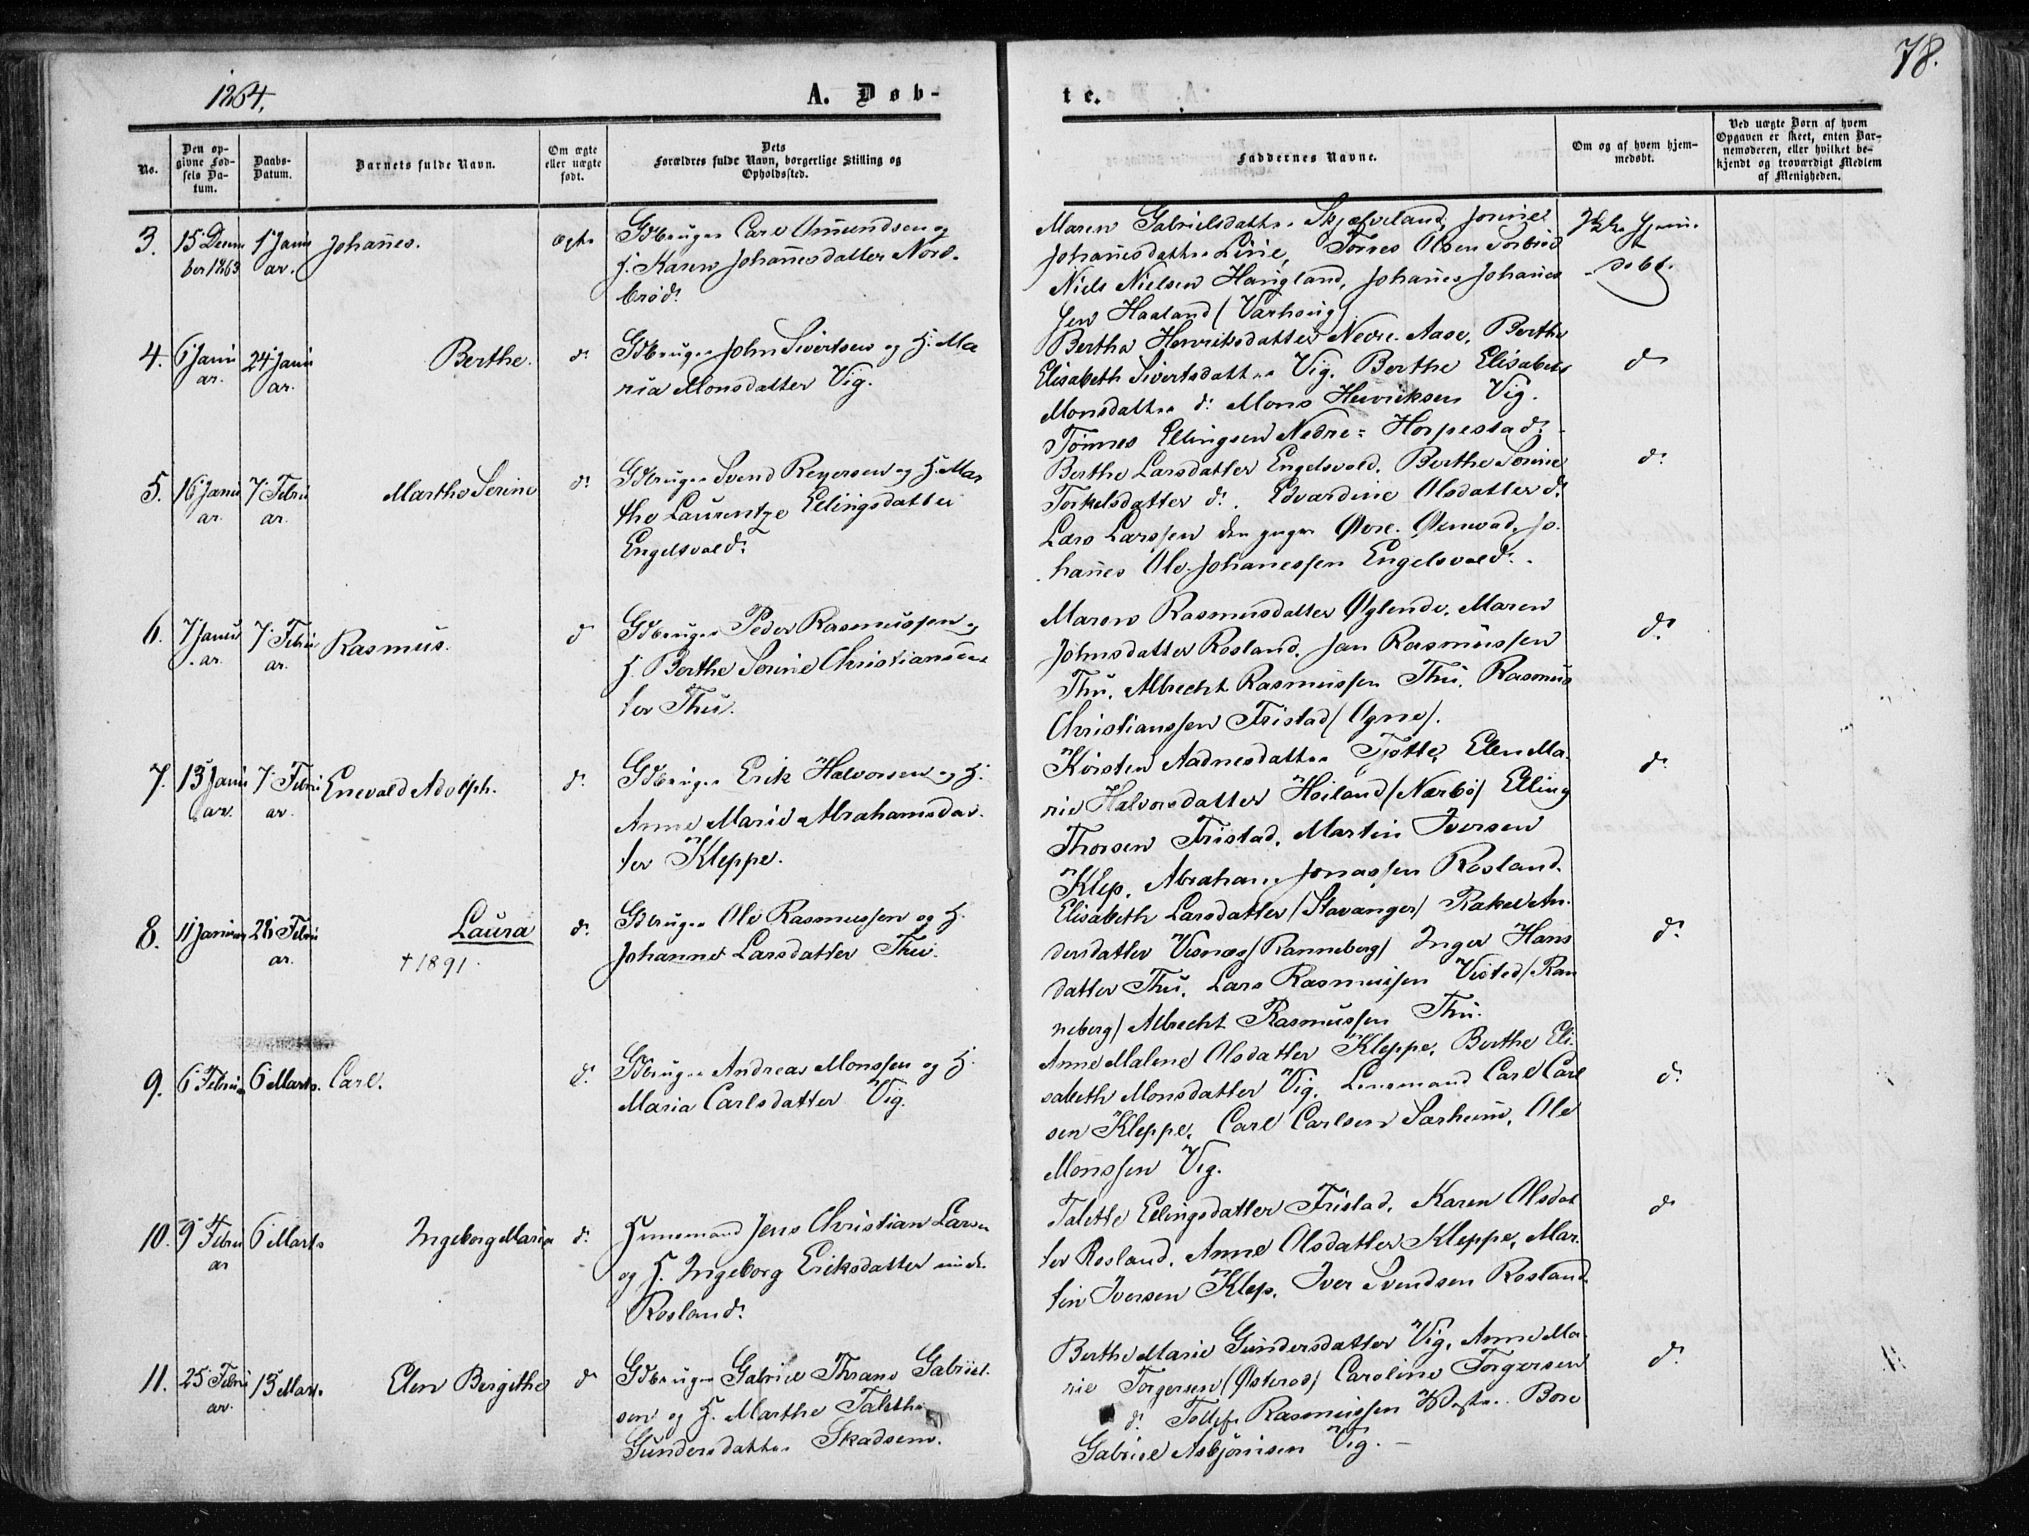 1864.
A. Døb-
te.
78.
No.
Den op-
givne Fød-
sels Da-
tum.
Daabs-
Datum.
Barnets fulde Navn.
Om ægte
eller uægte
født.
Dets
Forældres fulde Navn, borgerlige Stilling og
Opholdssted.
Faddernes Navne.
Om og af hvem hjem-
medøbt.
Ved uægte Børn af hvem
Opgaven er skeet, enten Bar-
nemoderen, eller hvilket be-
kjendt og troværdigt Medlem
af Menigheden.
3.
15 Decem
ber 1863
1 Janu
ar.
Johan̄es.
ægte
Gdbruger Carl Amundsen og
H. Maren Johan̄esdatter Nord-
brød:
Maren Gabrielsdatter Skjæfveland, Jonine
Johan̄esdatter Line, Tønes Olsen Norbrød
Niels Nielsen Haugland, Johan̄es Johan̄es
sen Haaland (Varhoug)
Ikke hjem-
døbt.
4.
6 Janu
ar.
24 Janu
ar.
Berthe.
d:
Gdbruger John Sivertsen og H. Ma
ria Monsdatter Vig.
Bertha Henriksdatter Nedre Aase, Berthe
Elisabeth Sivertsdatter Vig. Berthe Elisabeth
Monsdatter d: Mons Henriksen Vig.
Tønnes Ellingsen Nedre-Horpestad.
d:
5.
16 Janu
ar.
7 Febru
ar.
Marthe Serine
d:
Gdbruger Svend Reyersen og H. Mar
the Laurentze Ellingsdatter
Engelsvold.
Berthe Larsdatter Engelsvold. Berthe Serine
Torkelsdatter d:. Edvardine Olsdatter d:
Lars Larssen den yngre Øvre Øxnevad, Jo-
han̄es Ole Johan̄essen Engelsvold.
d:
6.
7 Janu
ar.
7 Febru
ar.
Rasmus.
d:
Gdbruger Peder Rasmussen og
H. Berthe Serine Christiansdat
ter Thu.
Maren Rasmusdatter Øglende. Maren
Johnsdatter Rosland, Jan Rasmussen
Thu, Albrecht Rasmussen Thu. Rasmus
Christianssen Tristad (Ogne).
d:
7.
13 Janu
ar.
7 Febru
ar.
Enevald Adolph.
d:
Gdbruger Erik Halvorsen og H.
Anne Marie Abrahamsdat-
ter Kleppe.
Kirsten Aadnesdatter Tjøtte, Elen Ma-
rie Halvorsdatter Høiland (Nærbø) Elling
Thorsen Tristad, Martin Iversen
Klep, Abraham Jonassen Rosland.
d:
8.
11 Januar
28 Febru
ar.
Laura
†1891.
d:
Gdbruger Ole Rasmussen og H.
Johanne Larsdatter Thu.
Elisabeth Larsdatter (Stavanger) Rakel An-
dersdatter Visnes (Ranneberg) Inger Hans
datter Thu, Lars Rasmussen Visted (Ran
neberg) Albrecht Rasmussen Thu.
d:
9.
6 Februar
6 Marts.
Carl.
d:
Gdbruger Andreas Monssen og H.
Maria Carlsdatter Vig.
Anne Malene Olsdatter Kleppe, Berthe Eli-
sabeth Monsdatter Vig, Lensmand Carl Carl
sen Kleppe, Carl Carlsen Sørheim, Ole
Monssen Vig.
d:
10.
9 Febru
ar
6 Marts
Ingeborg Maria
d:
Huusmand Jens Christian Larsen
og H. Ingeborg Eriksdatter under
Rosland.
Talette Ellingsdatter Tristad, Karen Olsdat
ter Rosland, Anne Olsdatter Kleppe, Mar-
tin Iversen Klep, Iver Svendsen Rosland.
d:
11.
25 Febru
ar.
13 Marts
Elen Bergithe
d:
Gdbruger Gabriel Thrane Gabriel-
sen og H. Marthe Talethe
Gundersdatter Skadsem.
Berthe Marie Gundersdatter Vig, Anne Ma-
rie Torgersen (Østerød) Caroline Torgersen
d: Tollef Rasmussen Vestre Bore
Gabriel Asbjørnsen Vig.
d: